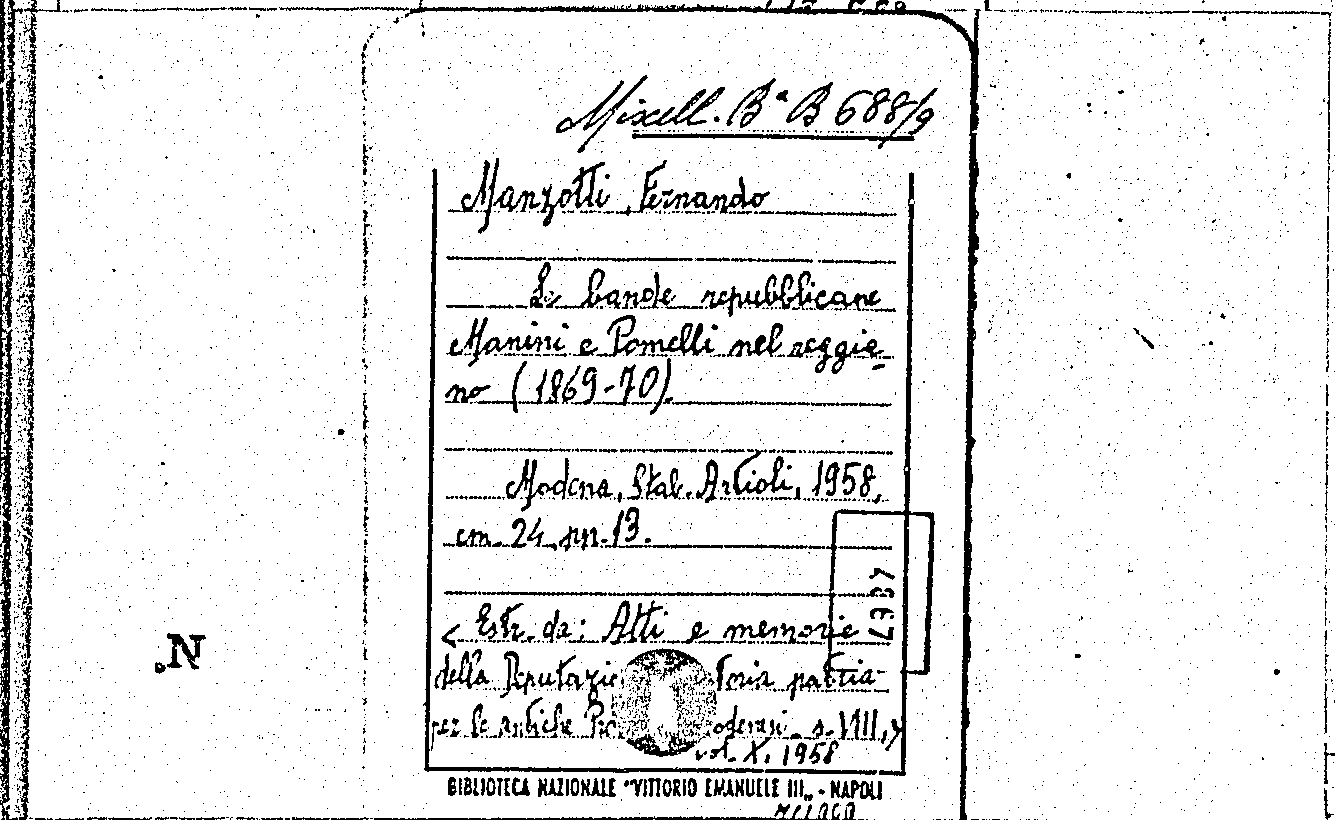 Miscell. Bª B 688/9
Manzotti, Fernando
Le bande repubblicane
Manini e Pomelli nel reggia-
no (1869-70).
Modena, Stab. Artioli, 1958,
cm. 24, pp. 13.
4867
< Estr. da: Atti e memorie
della Deputazio toria patria
per le antiche Pro odenesi, s. VIII,
vol. X, 1958
N.
BIBLIOTECA NAZIONALE "VITTORIO EMANUELE III" - NAPOLI